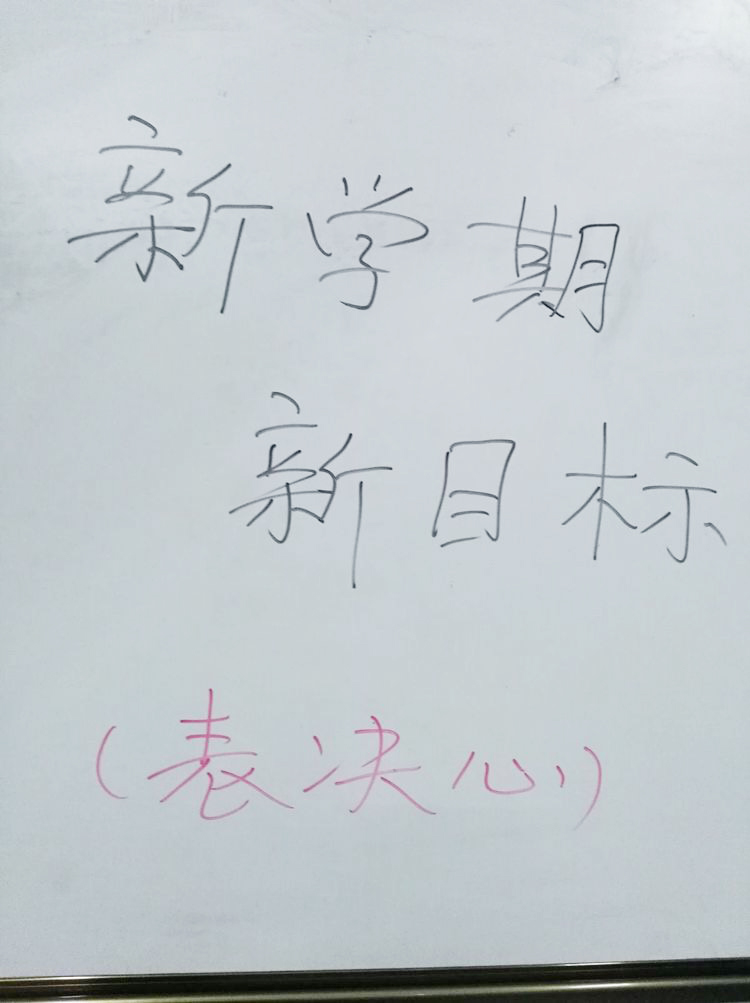 新学期
新目标
(表决心)